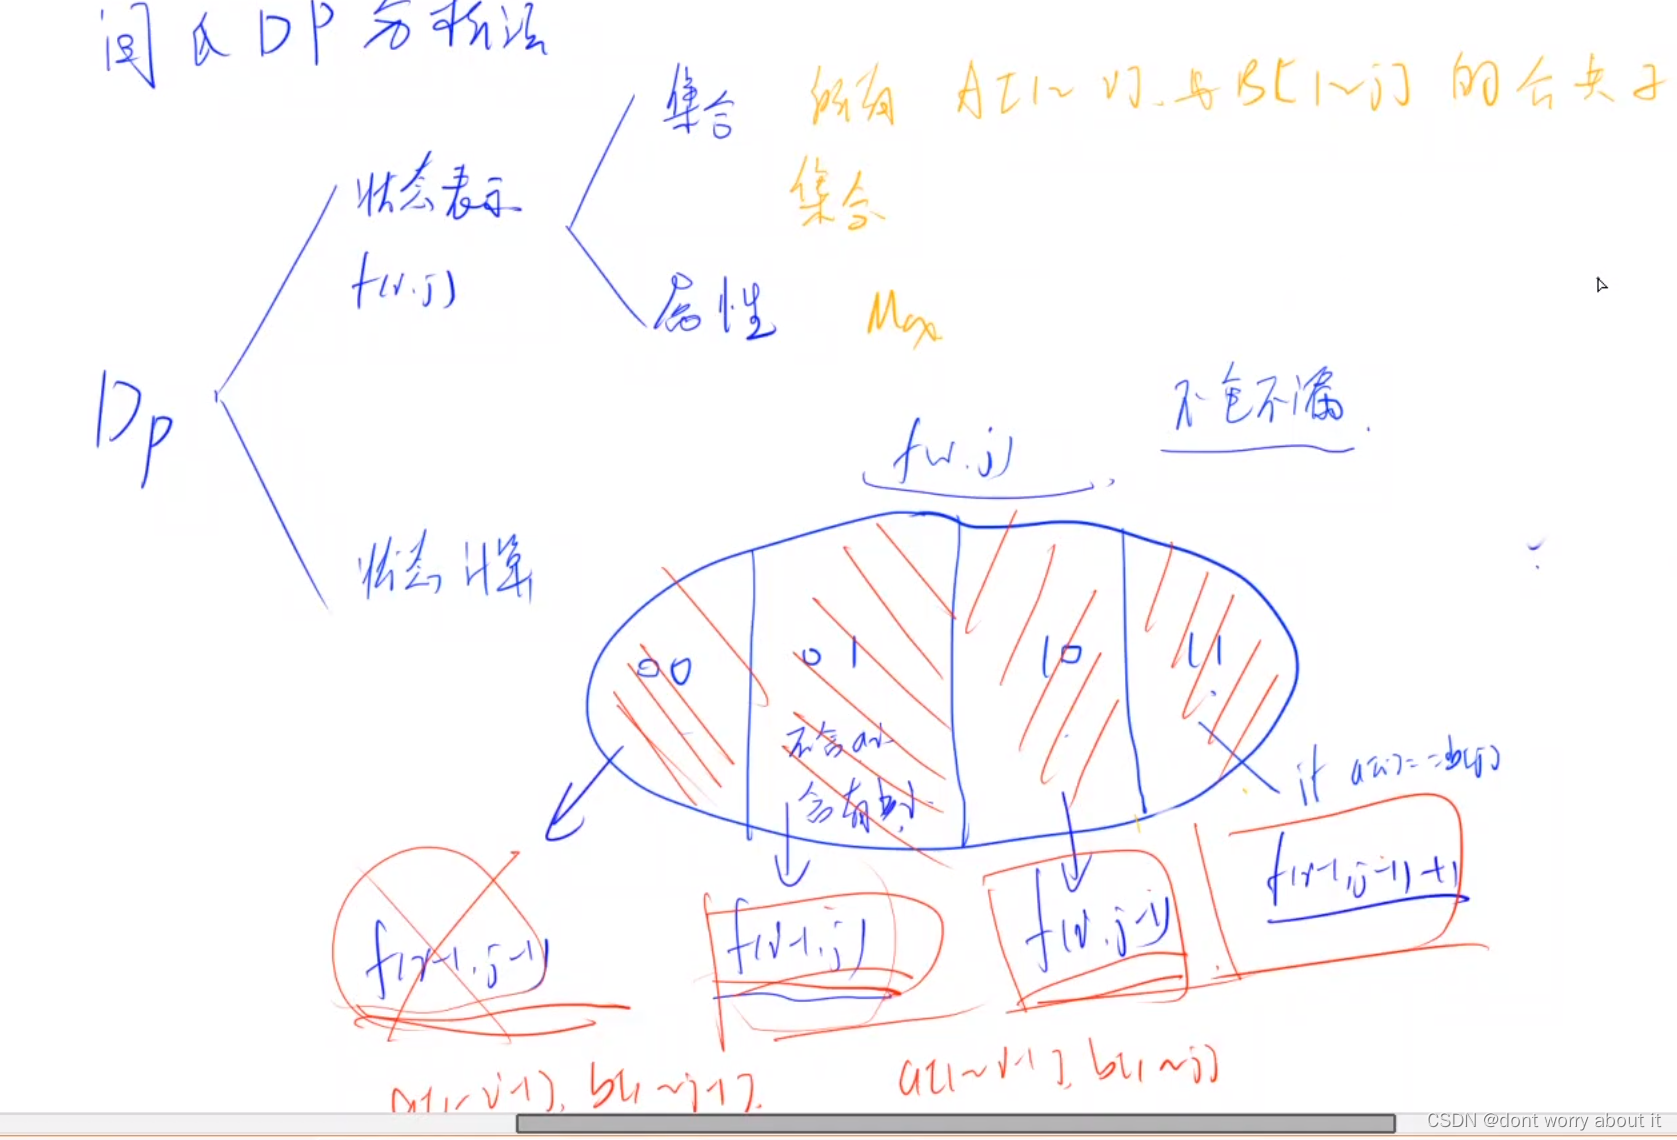 闫氏DP分析法
集合 所有 A[1~i] 与B[1~j] 的公共子
集合
状态表示
f(i,j)
属性 Max
不包不漏.
DP
f(i,j)
状态计算
00 01 10 11
不含a[i]
含有b[j]
if a[i]==b[j]
f(i-1,j-1)+1
f(i-1,j-1) f(i-1,j) f(i,j-1)
a[1~i-1], b[1~j-1]. a[1~i-1], b[1~j]
CSDN @dont worry about it